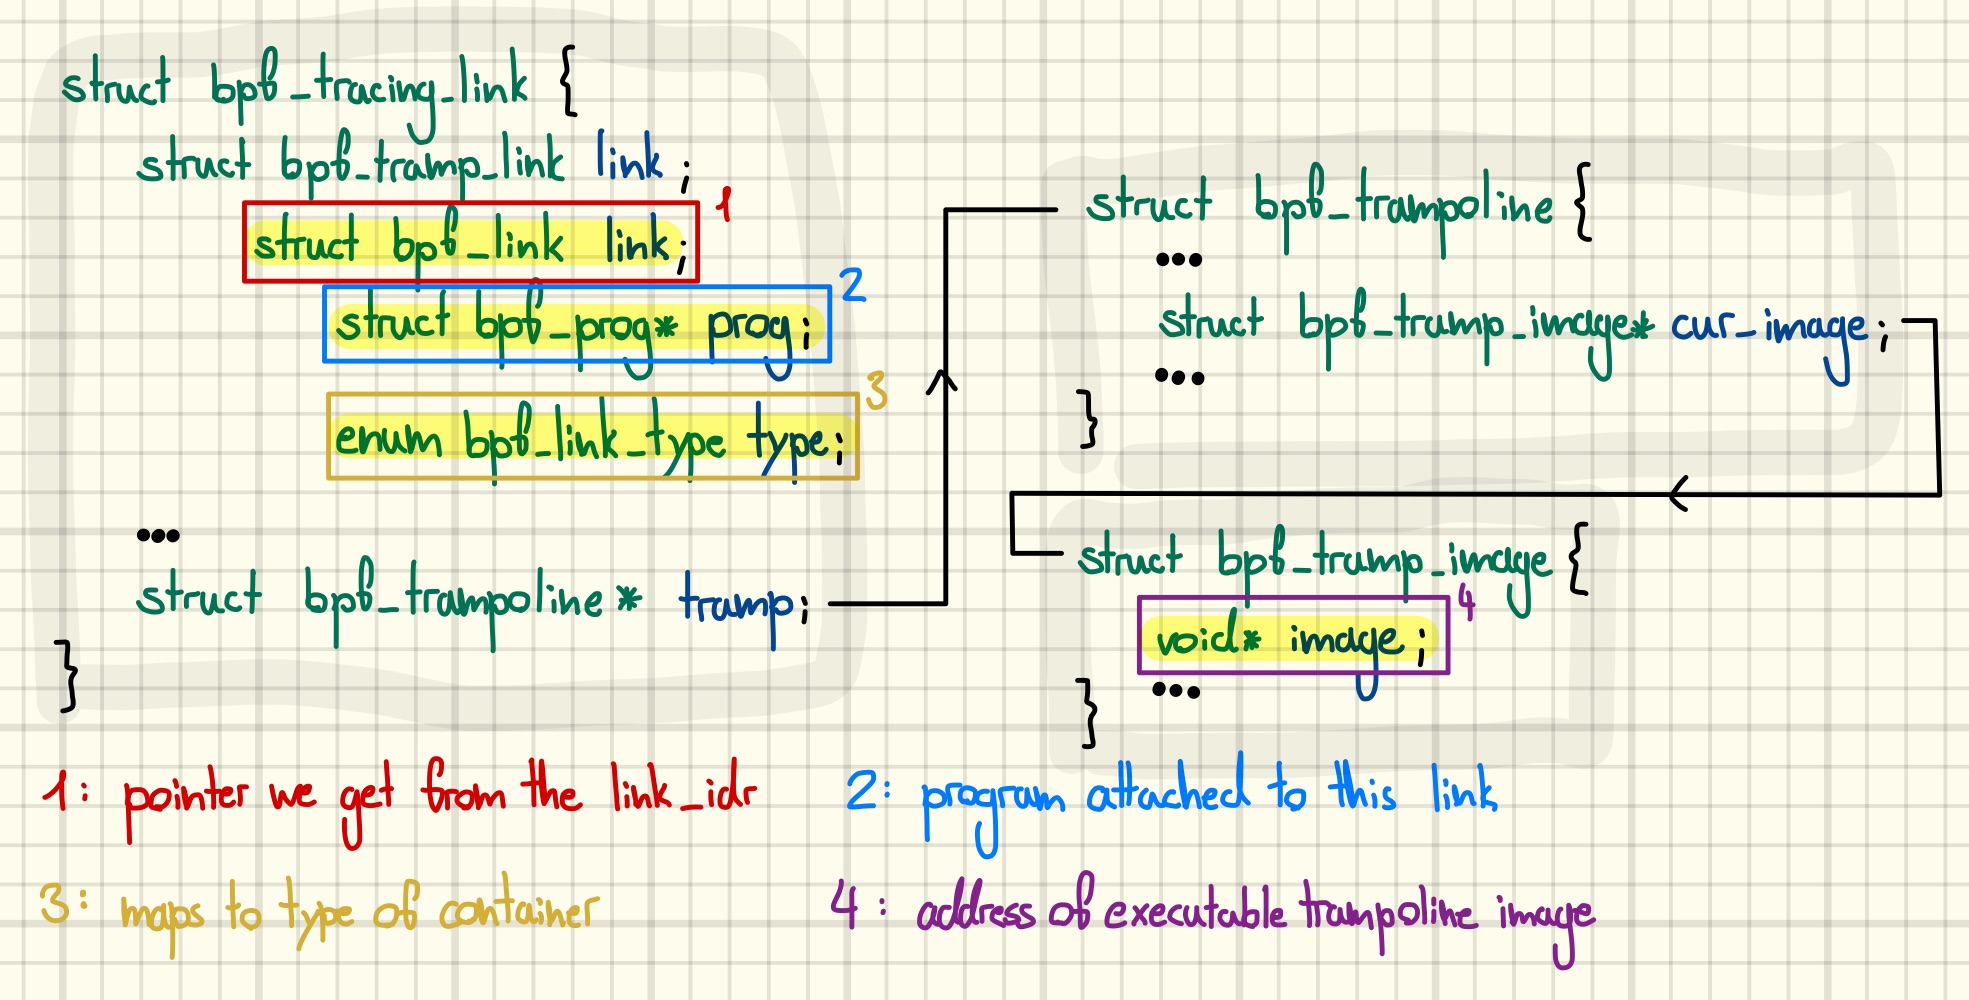 struct bpf_tracing_link {
struct bpf_tramp_link link;
struct bpf_link link; 1
struct bpf_prog* prog; 2
enum bpf_link_type type; 3
...
struct bpf_trampoline* tramp;
}
struct bpf_trampoline {
...
struct bpf_tramp_image* cur_image;
...
}
struct bpf_tramp_image {
void* image; 4
...
}
1: pointer we get from the link_idr
2: program attached to this link
3: maps to type of container
4: address of executable trampoline image